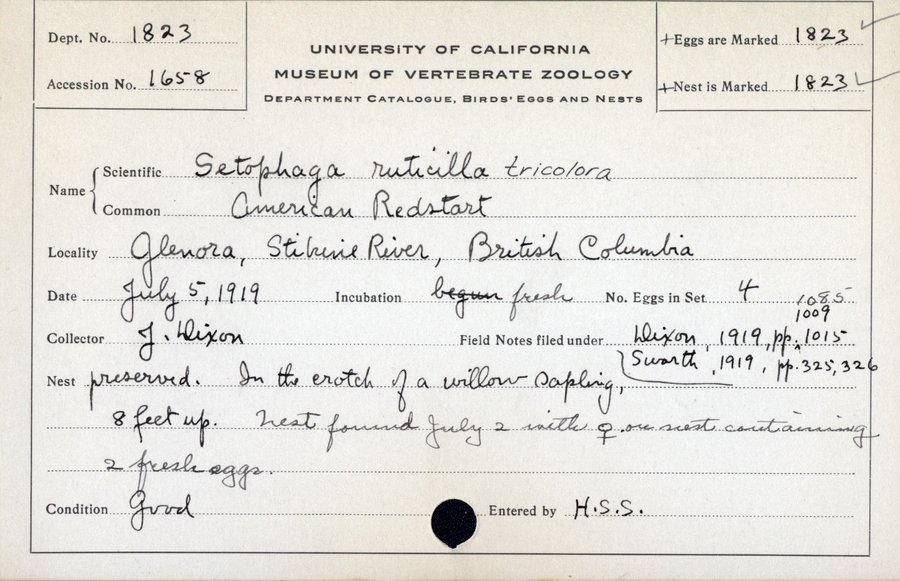 Dept. No. 1823
Accession No. 1658
UNIVERSITY OF CALIFORNIA
MUSEUM OF VERTEBRATE ZOOLOGY
DEPARTMENT CATALOGUE, BIRDS' EGGS AND NESTS
+Eggs are Marked 1823
+Nest is Marked 1823
Name
Scientific Setophaga ruticilla tricolora
Common American Redstart
Locality Glenora, Stikine River, British Columbia
Date July 5, 1919 Incubation begun fresh No. Eggs in Set 4
1085
1009
Collector J. Dixon Field Notes filed under Dixon, 1919, pp. 1015
Swarth, 1919, pp. 325, 326
Nest preserved. In the crotch of a willow sapling,
8 feet up. Nest found July 2 with ♀ on nest containing
2 fresh eggs.
Condition Good Entered by H.S.S.